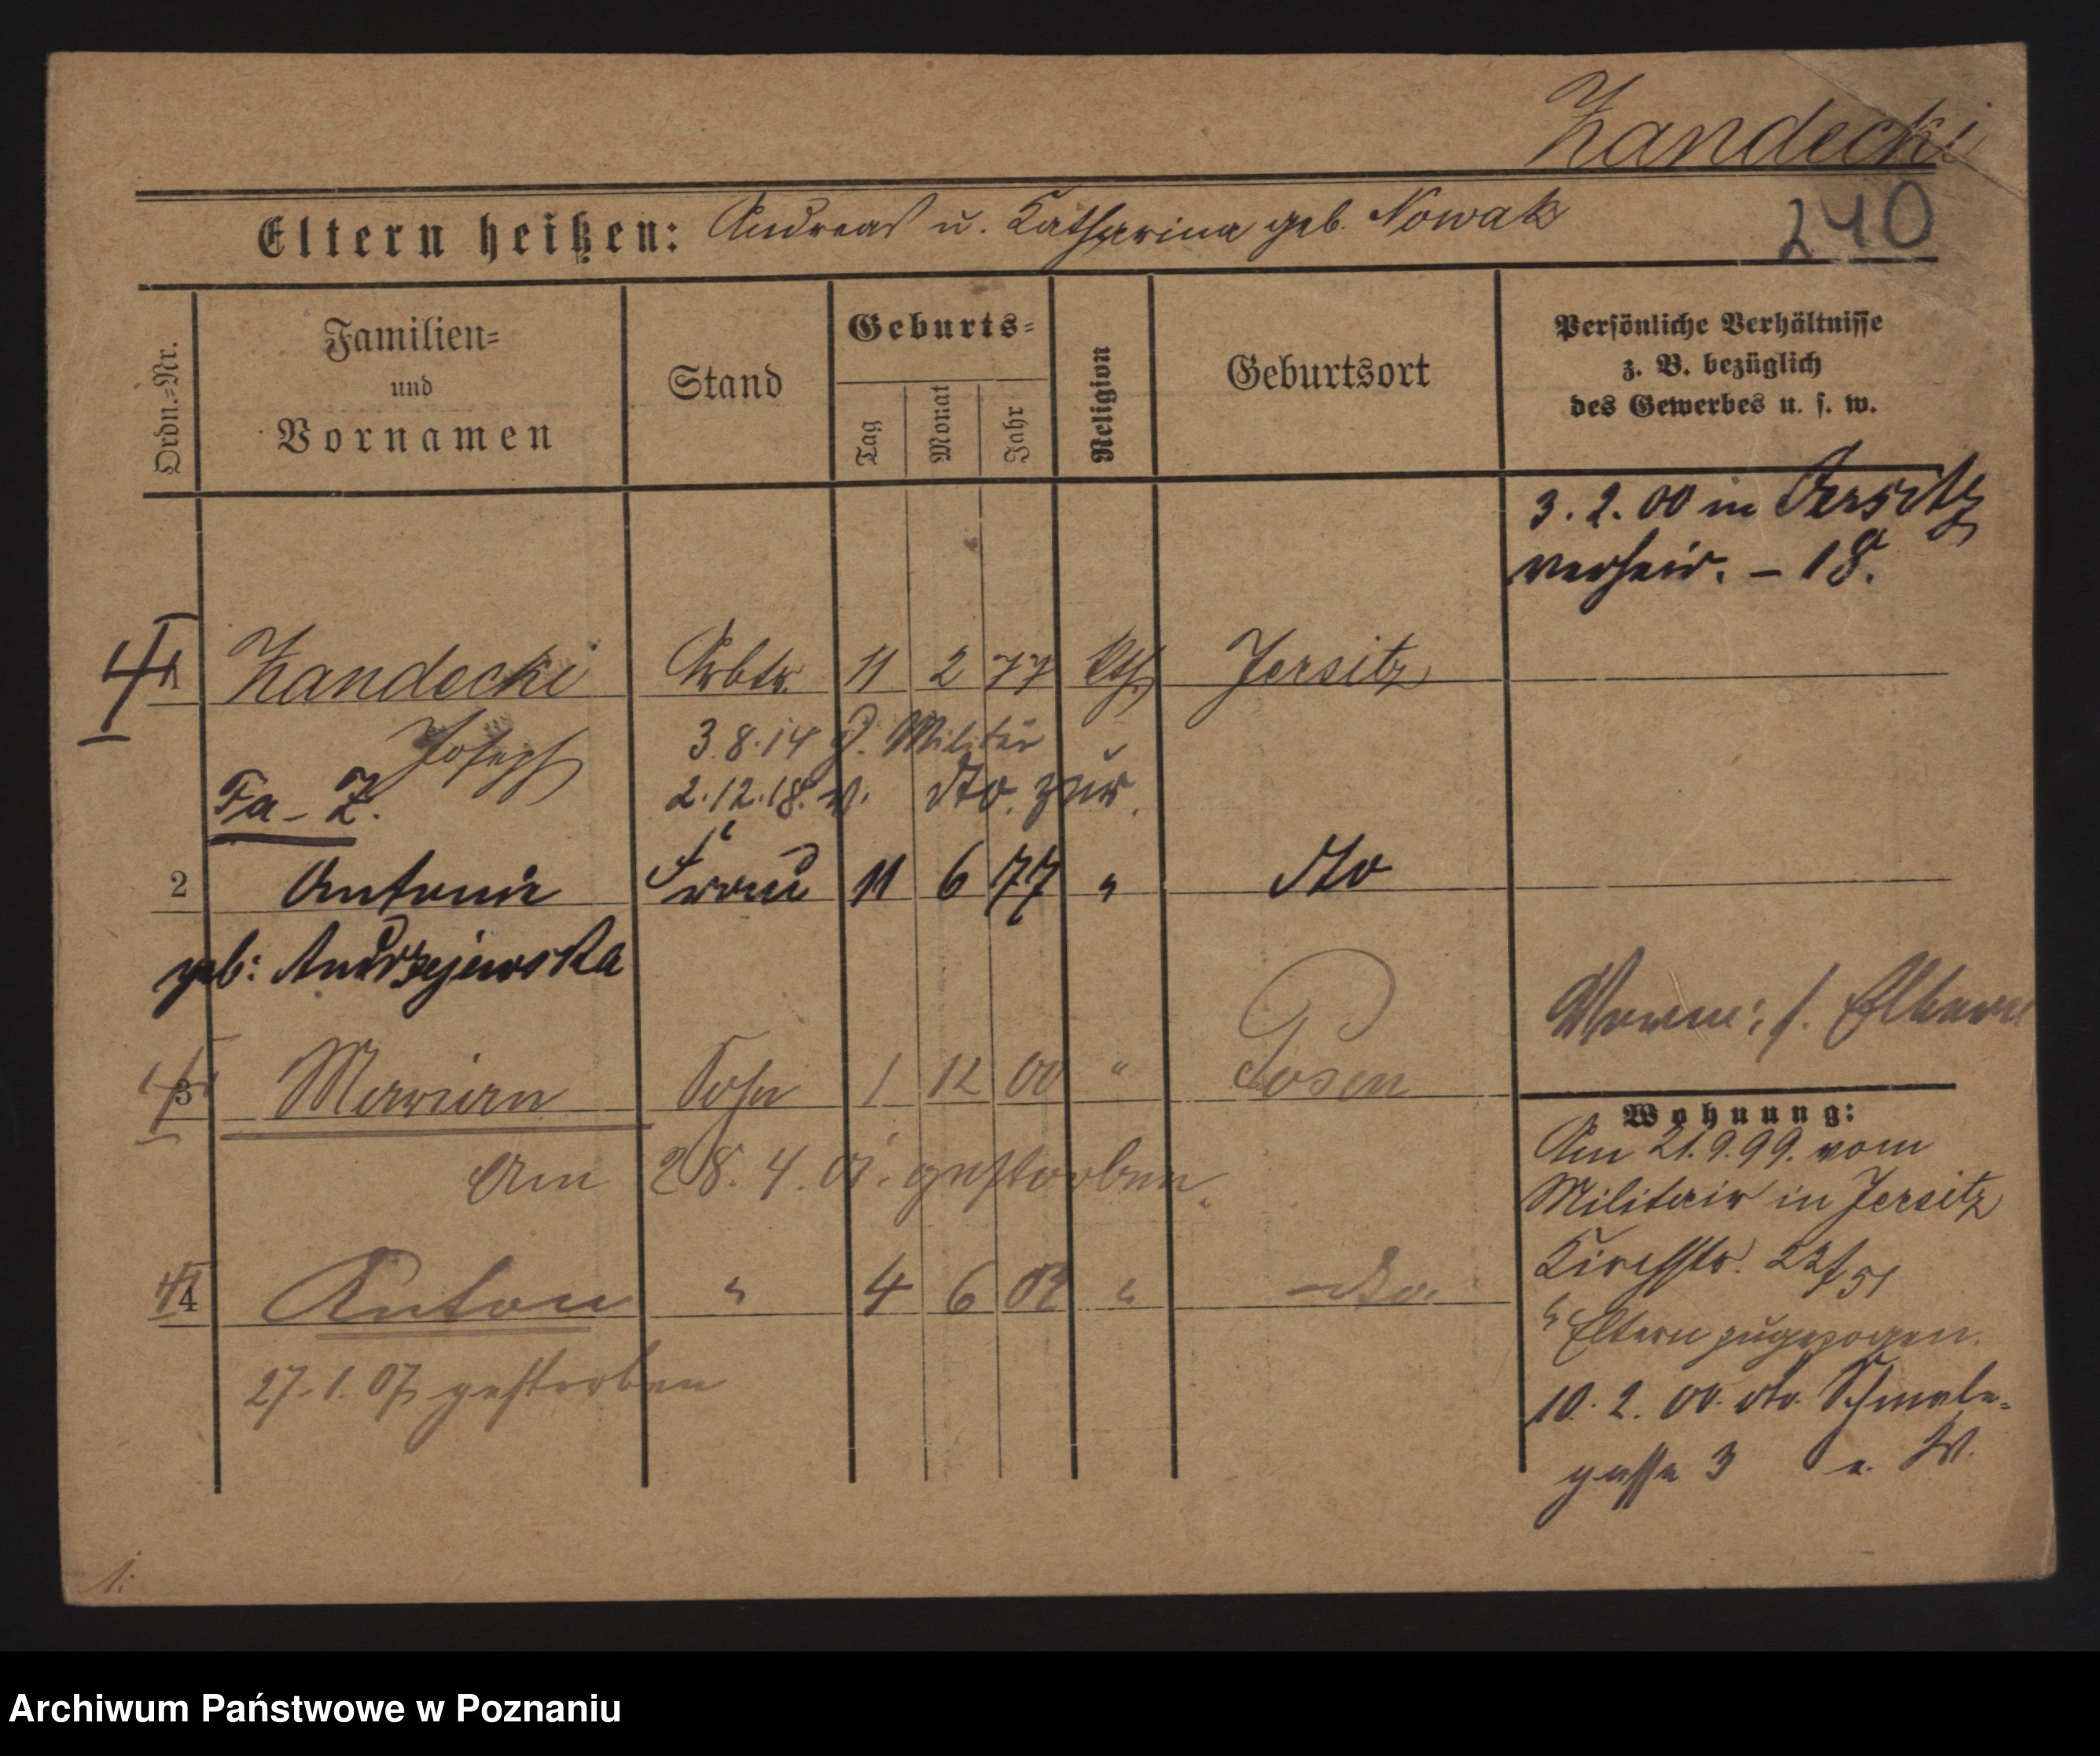 Zandecki
240
Eltern heißen: Andreas u. Katharina geb. Nowak
Ordn.-Nr.
Familien- und Vornamen
Stand
Geburts-
Tag
Monat
Jahr
Religion
Geburtsort
Persönliche Verhältnisse
z. B. bezüglich
des Gewerbes u. s. w.
3. 2. 00 in Jersitz
verheir. – 18.
1 Zandecki Arbtr. 11 2 77 kth Jersitz
Joseph
3.8.14 z. Militär
Fa – Z.
2.12.18. v. dto. zur.
2 Antonie Frau 11 6 77 " dto
geb: Andrzejewska
3 Maryan Sohn 1 12 00 " Posen
Am 28. 4. 01. gestorben.
4 Anton " 4 6 02 " dto.
27. 1. 07 gestorben
Wohnung:
Am 21.9.99. vom
Militair in Jersitz
Kirchstr. 22/51
Eltern zugezogen.
10. 2. 00. dto. Schmale-
gasse 3 e. W.
1.
Archiwum Państwowe w Poznaniu